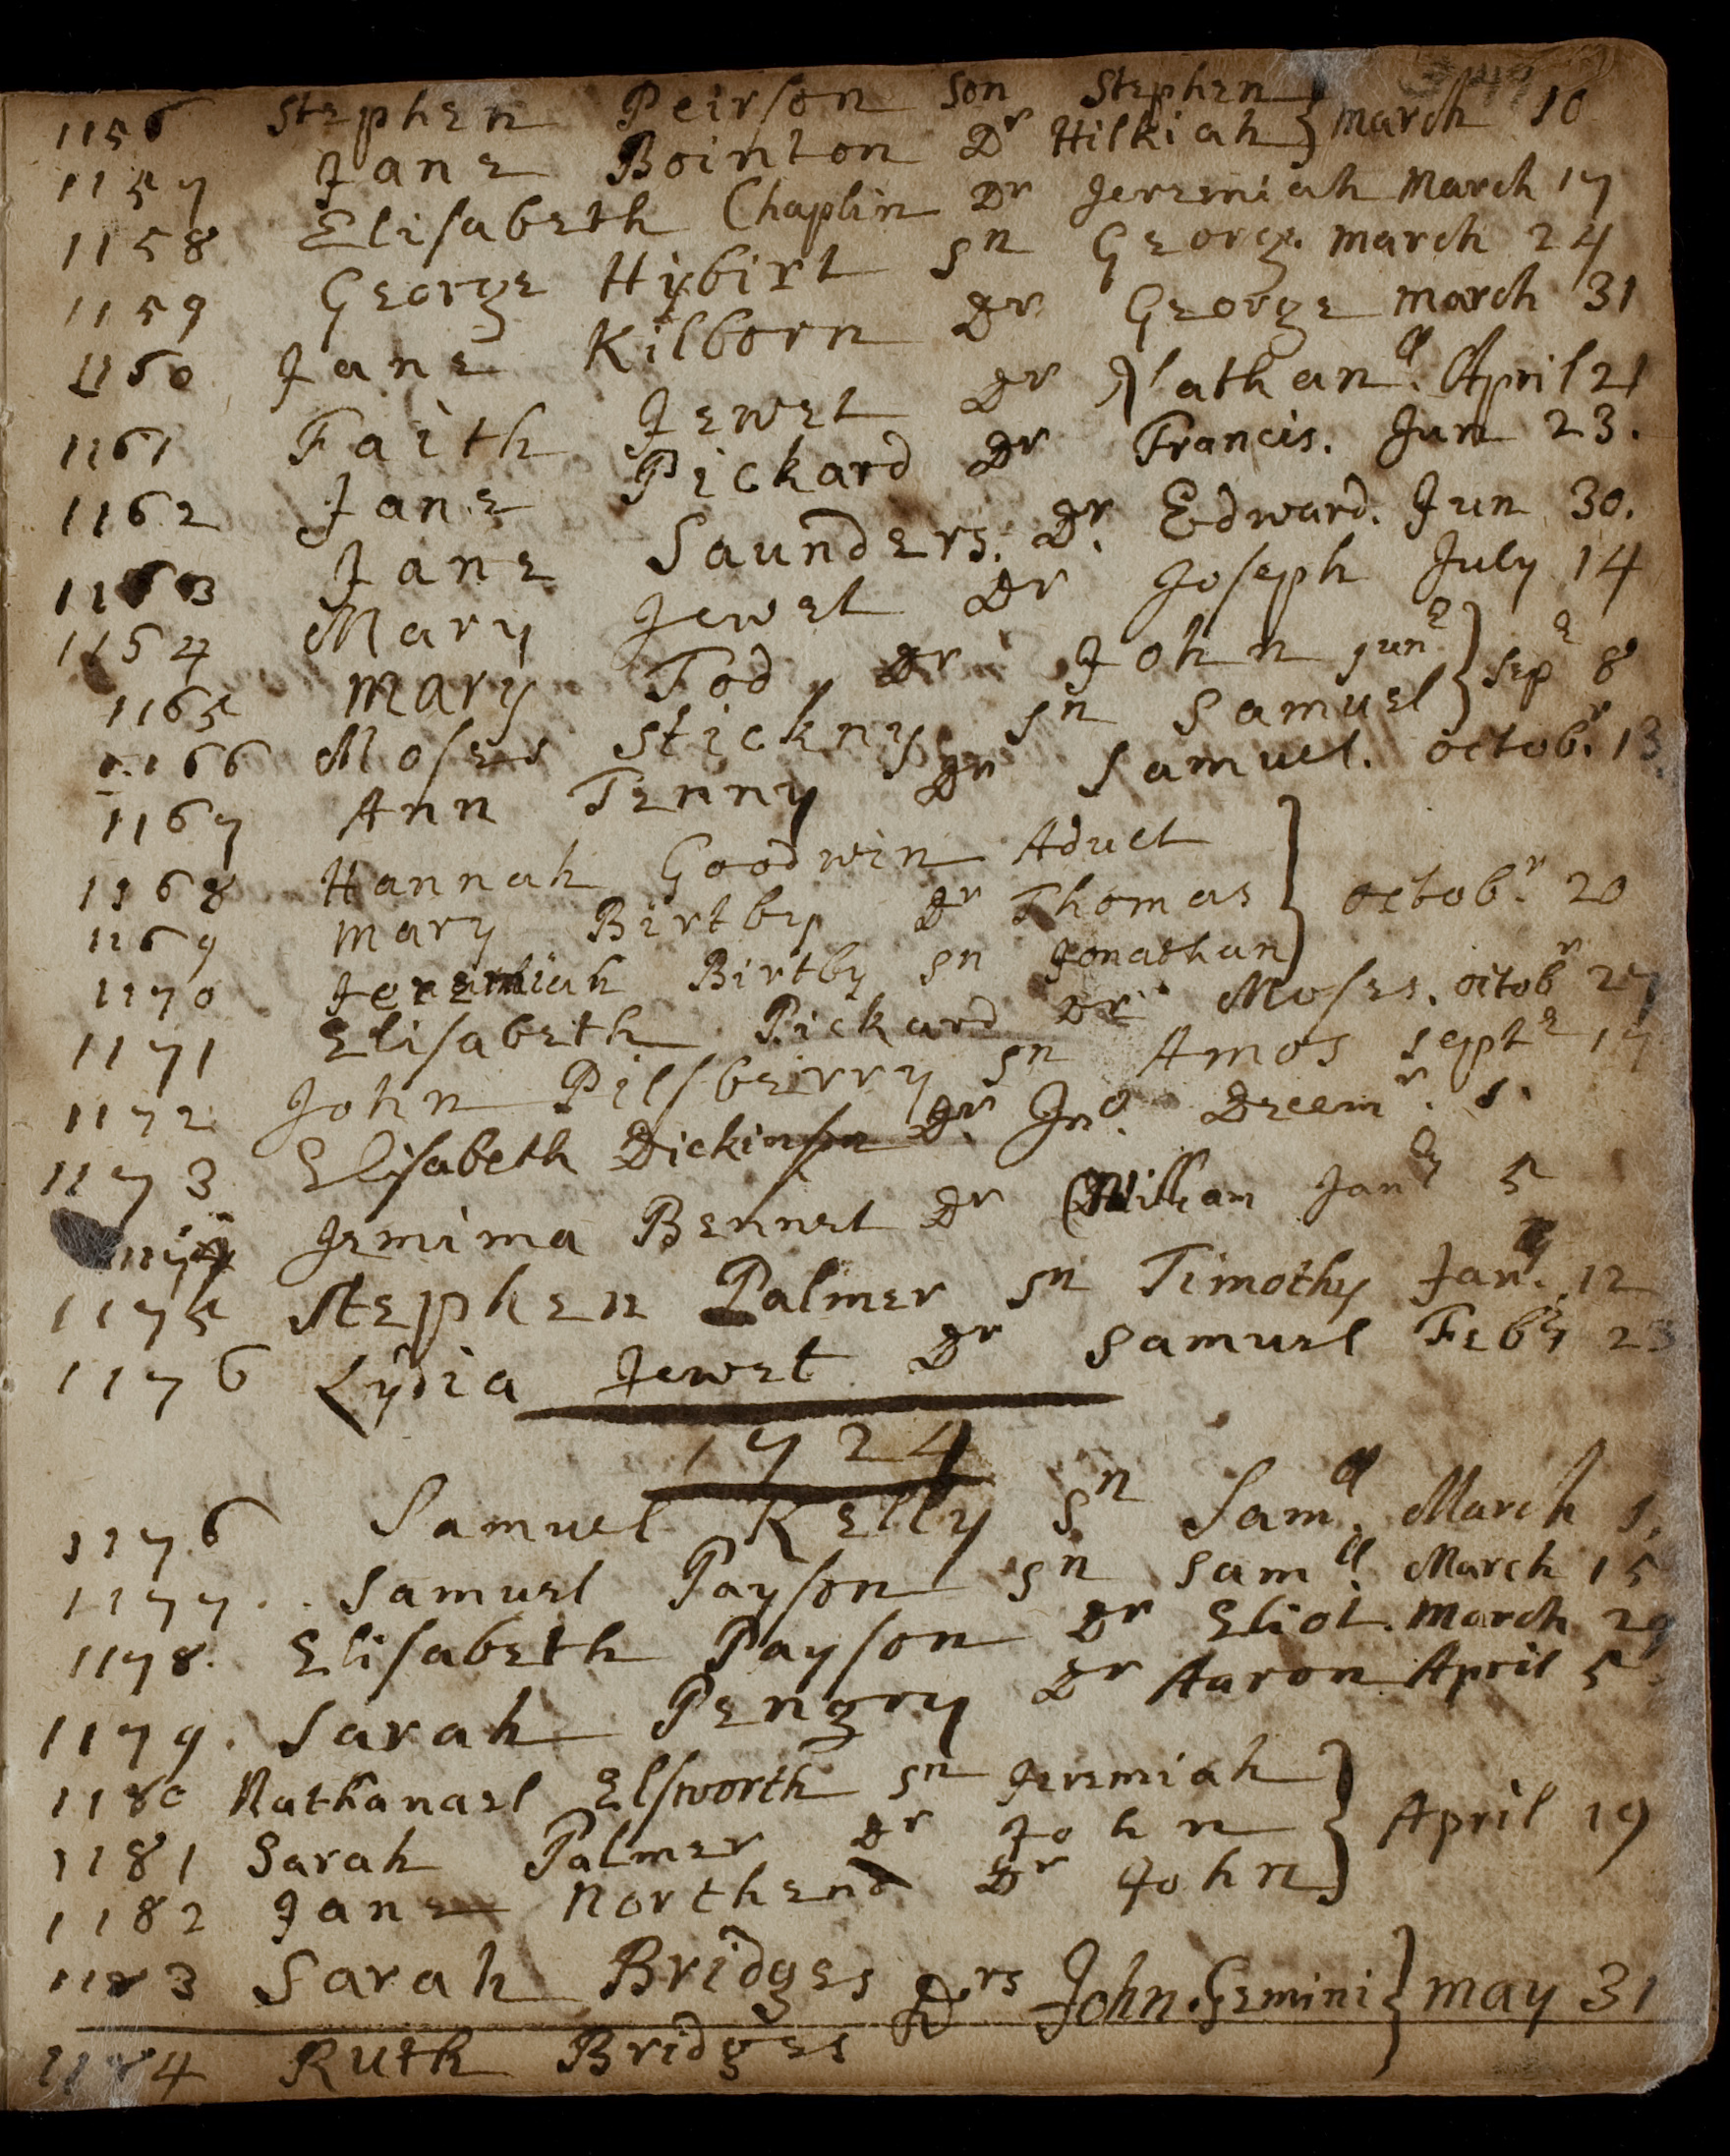 1156 Stephen Peirson son Stephen
1157 Jane Bointon Dr Hilkiah } March 10
1158 Elisabeth Chaplin Dr Jeremiah March 17
1159 George Hibirt Sn George. March 24
1160 Jane Kilborn Dr George March 31
1161 Faith Jewet Dr Nathanll. April 21
1162 Jane Pickard Dr Francis. Jun 23.
1163 Jane Saunders. Dr. Edward. Jun 30.
1164 Mary Jewet Dr Joseph July 14
1165 Mary Tod Dr John junr
1166 Moses Stickny Sn Samuel } Sepr 8
1167 Ann Tenny Dr Samuel. Octobr. 13.
1168 Hannah Goodwin Adult
1169 Mary Birtby Dr Thomas } Octobr. 20
1170 Jeremiah Birtby Sn Jonathan
1171 Elisabeth Pickard Dr Moses. Octobr 27
1172 John Pilsberry Sn Amos Septr 17
1173 Elisabeth Dickinson Dr. Jno. Deeemr. 1.
1174 Jemima Bennet Dr William Jany 5
1175 Stephen Palmer Sn Timothy Jany. 12
1176 Lydia Jewet Dr Samuel Febry 23
1724
1176 Samuel Kelly Sn Samll. March 1.
1177. Samuel Payson Sn Samll. March 15
1178. Elisabeth Payson Dr Eliot. March 29
1179. Sarah Pengry Dr Aaron April 5
1180 Nathanael Elsworth Sn Jeremiah
1181 Sarah Palmer Dr John } April 19
1182 Jane Northend Dr John
1183 Sarah Bridges Drs John. Gemini } May 31
1184 Ruth Bridges